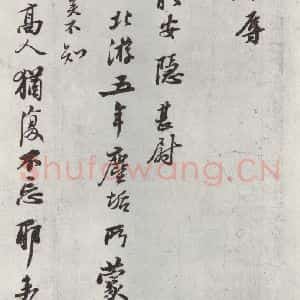 辱
安隱甚尉
北游五年塵垢所蒙
矣不知
高人猶復不忘耶未
Shufawang.CN